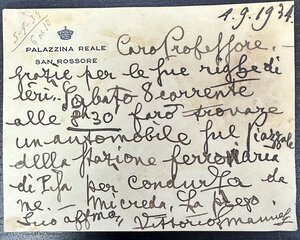 1.9.1934.
PALAZZINA REALE
SAN ROSSORE
Caro Professore.
Grazie per le sue righe di
ieri. Sabato 8 corrente
alle 8,30 farò trovare
un automobile sul piazzale
della stazione ferroviaria
di Pisa per condurla da
me. Mi creda, La prego,
suo affmo Vittorio Emanuele